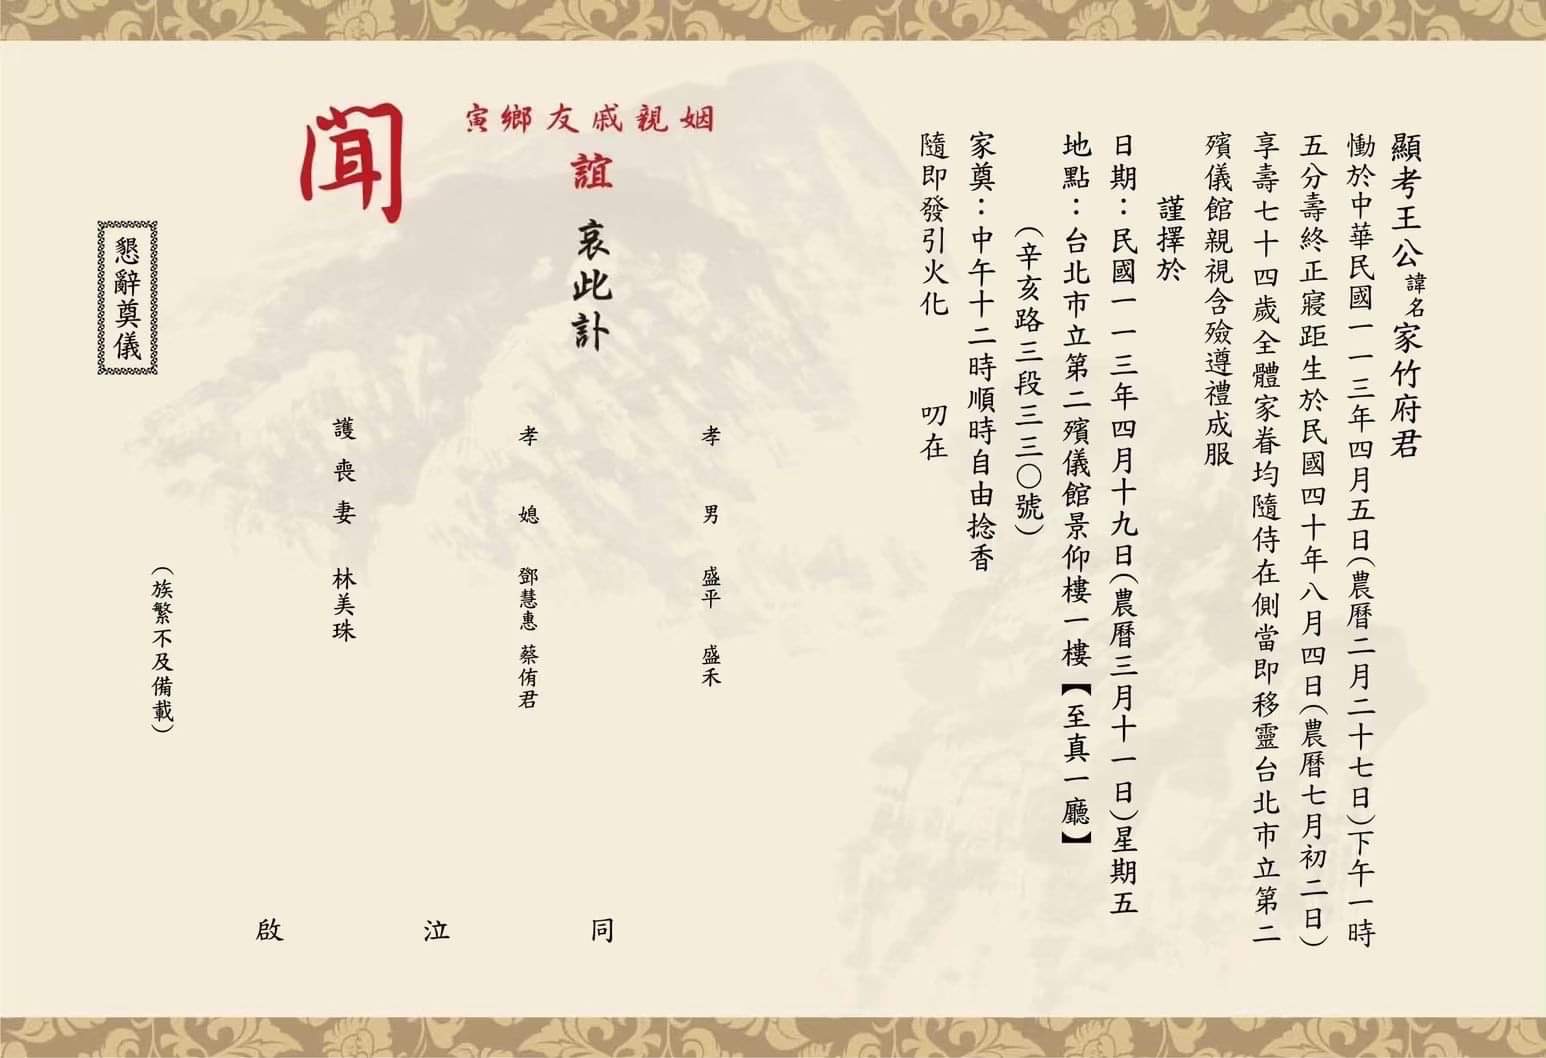 顯考王公諱名家竹府君
慟於中華民國一一三年四月五日(農曆二月二十七日)下午一時
五分壽終正寢距生於民國四十年八月四日(農曆七月初二日)
享壽七十四歲全體家眷均隨侍在側當即移靈台北市立第二
殯儀館親視含殮遵禮成服
謹擇於
日期：民國一一三年四月十九日(農曆三月十一日)星期五
地點：台北市立第二殯儀館景仰樓一樓【至真一廳】
(辛亥路三段三三〇號)
家奠：中午十二時順時自由捻香
隨即發引火化 叨在
姻親戚友鄉寅
誼
哀此訃
聞
孝男 盛平 盛禾
孝媳 鄧慧惠 蔡侑君
護喪妻 林美珠
(族繁不及備載)
同泣啟
懇辭奠儀